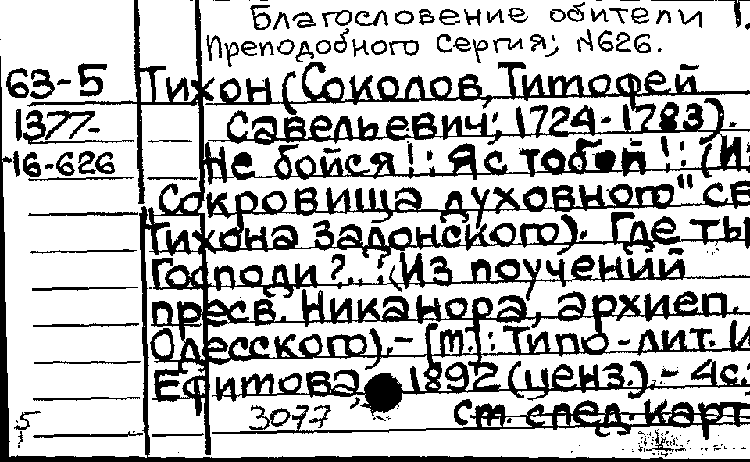 Благословение обители
Преподобного Сергия; №626.
63-5 Тихон (Соколов, Тимофей
1377- Савельевич; 1724-1783).
16-626 Не бойся!: Я с тобой!: (Из
"Сокровища духовного" св
Тихона Задонского). Где ты
Господи?..: (Из поучений
пресв. Никанора, архиеп.
Одесского).- [м.]: Типо-лит. И
Ефимова, 1892 (ценз.).- 4с.
3077 См. след. карт
5